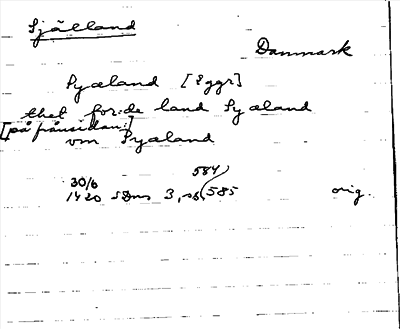 Själland
Danmark
Syæland [2ggr]
thet for:de land Syæland
[på frånsidan:]
vm Syæland
584/
30/6
1420 SDns 3, s. 585 orig.